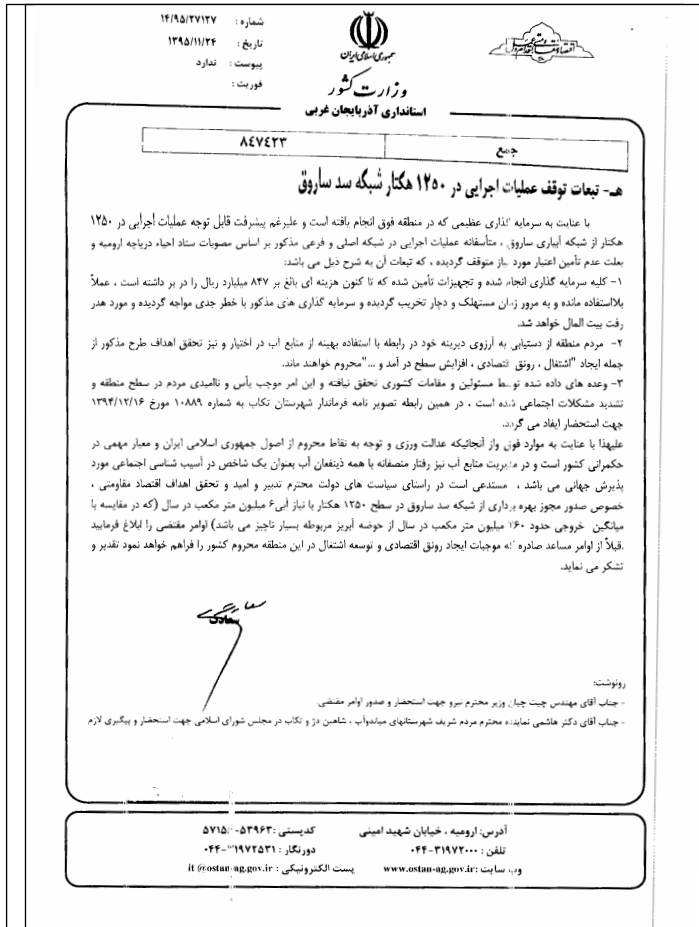 شماره : ۱۴/۹۵/۲۷۱۲۷
تاریخ : ۱۳۹۵/۱۱/۲۴
پیوست : ندارد
فوریت :
جمهوری اسلامی ایران
وزارت کشور
استانداری آذربایجان غربی
جمع ۸٤۷٤۲۳
هـ- تبعات توقف عملیات اجرایی در ۱۲۵۰ هکتار شبکه سد ساروق
با عنایت به سرمایه گذاری عظیمی که در منطقه فوق انجام یافته است و علیرغم پیشرفت قابل توجه عملیات اجرایی در ۱۲۵۰
هکتار از شبکه آبیاری ساروق ، متأسفانه عملیات اجرایی در شبکه اصلی و فرعی مذکور بر اساس مصوبات ستاد احیاء دریاچه ارومیه و
بعلت عدم تأمین اعتبار مورد نیاز متوقف گردیده ، که تبعات آن به شرح ذیل می باشد:
۱- کلیه سرمایه گذاری انجام شده و تجهیزات تأمین شده که تا کنون هزینه ای بالغ بر ۸۴۷ میلیارد ریال را در بر داشته است ، عملاً
بلااستفاده مانده و به مرور زمان مستهلک و دچار تخریب گردیده و سرمایه گذاری های مذکور با خطر جدی مواجه گردیده و مورد هدر
رفت بیت المال خواهد شد.
۲- مردم منطقه از دستیابی به آرزوی دیرینه خود در رابطه با استفاده بهینه از منابع آب در اختیار و نیز تحقق اهداف طرح مذکور از
جمله ایجاد "اشتغال ، رونق اقتصادی ، افزایش سطح در آمد و ..."محروم خواهند ماند.
۳- وعده های داده شده توسط مسئولین و مقامات کشوری تحقق نیافته و این امر موجب یأس و ناامیدی مردم در سطح منطقه و
تشدید مشکلات اجتماعی شده است ، در همین رابطه تصویر نامه فرماندار شهرستان تکاب به شماره ۱۰۸۸۹ مورخ ۱۳۹۴/۱۲/۱۶
جهت استحضار ایفاد می گردد.
علیهذا با عنایت به موارد فوق واز آنجائیکه عدالت ورزی و توجه به نقاط محروم از اصول جمهوری اسلامی ایران و معیار مهمی در
حکمرانی کشور است و در مدیریت منابع آب نیز رفتار منصفانه با همه ذینفعان آب بعنوان یک شاخص در آسیب شناسی اجتماعی مورد
پذیرش جهانی می باشد ، مستدعی است در راستای سیاست های دولت محترم تدبیر و امید و تحقق اهداف اقتصاد مقاومتی ،
خصوص صدور مجوز بهره برداری از شبکه سد ساروق در سطح ۱۲۵۰ هکتار با نیاز آبی۶ میلیون متر مکعب در سال (که در مقایسه با
میانگین خروجی حدود ۶۰ میلیون متر مکعب در سال از حوضه آبریز مربوطه بسیار ناچیز می باشد) اوامر مقتضی را ابلاغ فرمایید
.قبلاً از اوامر مساعد صادره که موجبات ایجاد رونق اقتصادی و توسعه اشتغال در این منطقه محروم کشور را فراهم خواهد نمود تقدیر و
تشکر می نماید.
سعادت
رونوشت:
- جناب آقای مهندس چیت چیان وزیر محترم نیرو جهت استحضار و صدور اوامر مقتضی
- جناب آقای دکتر هاشمی نماینده محترم مردم شریف شهرستانهای میاندوآب ، شاهین دژ و تکاب در مجلس شورای اسلامی جهت استحضار و پیگیری لازم
آدرس: ارومیه ، خیابان شهید امینی کدپستی :۵۳۹۶۳-۵۷۱۵
تلفن : ۳۱۹۷۲۰۰۰-۰۴۴ دورنگار : ۳۱۹۷۲۵۳۱-۰۴۴
وب سایت :www.ostan-ag.gov.ir پست الکترونیکی : it@ostan-ag.gov.ir